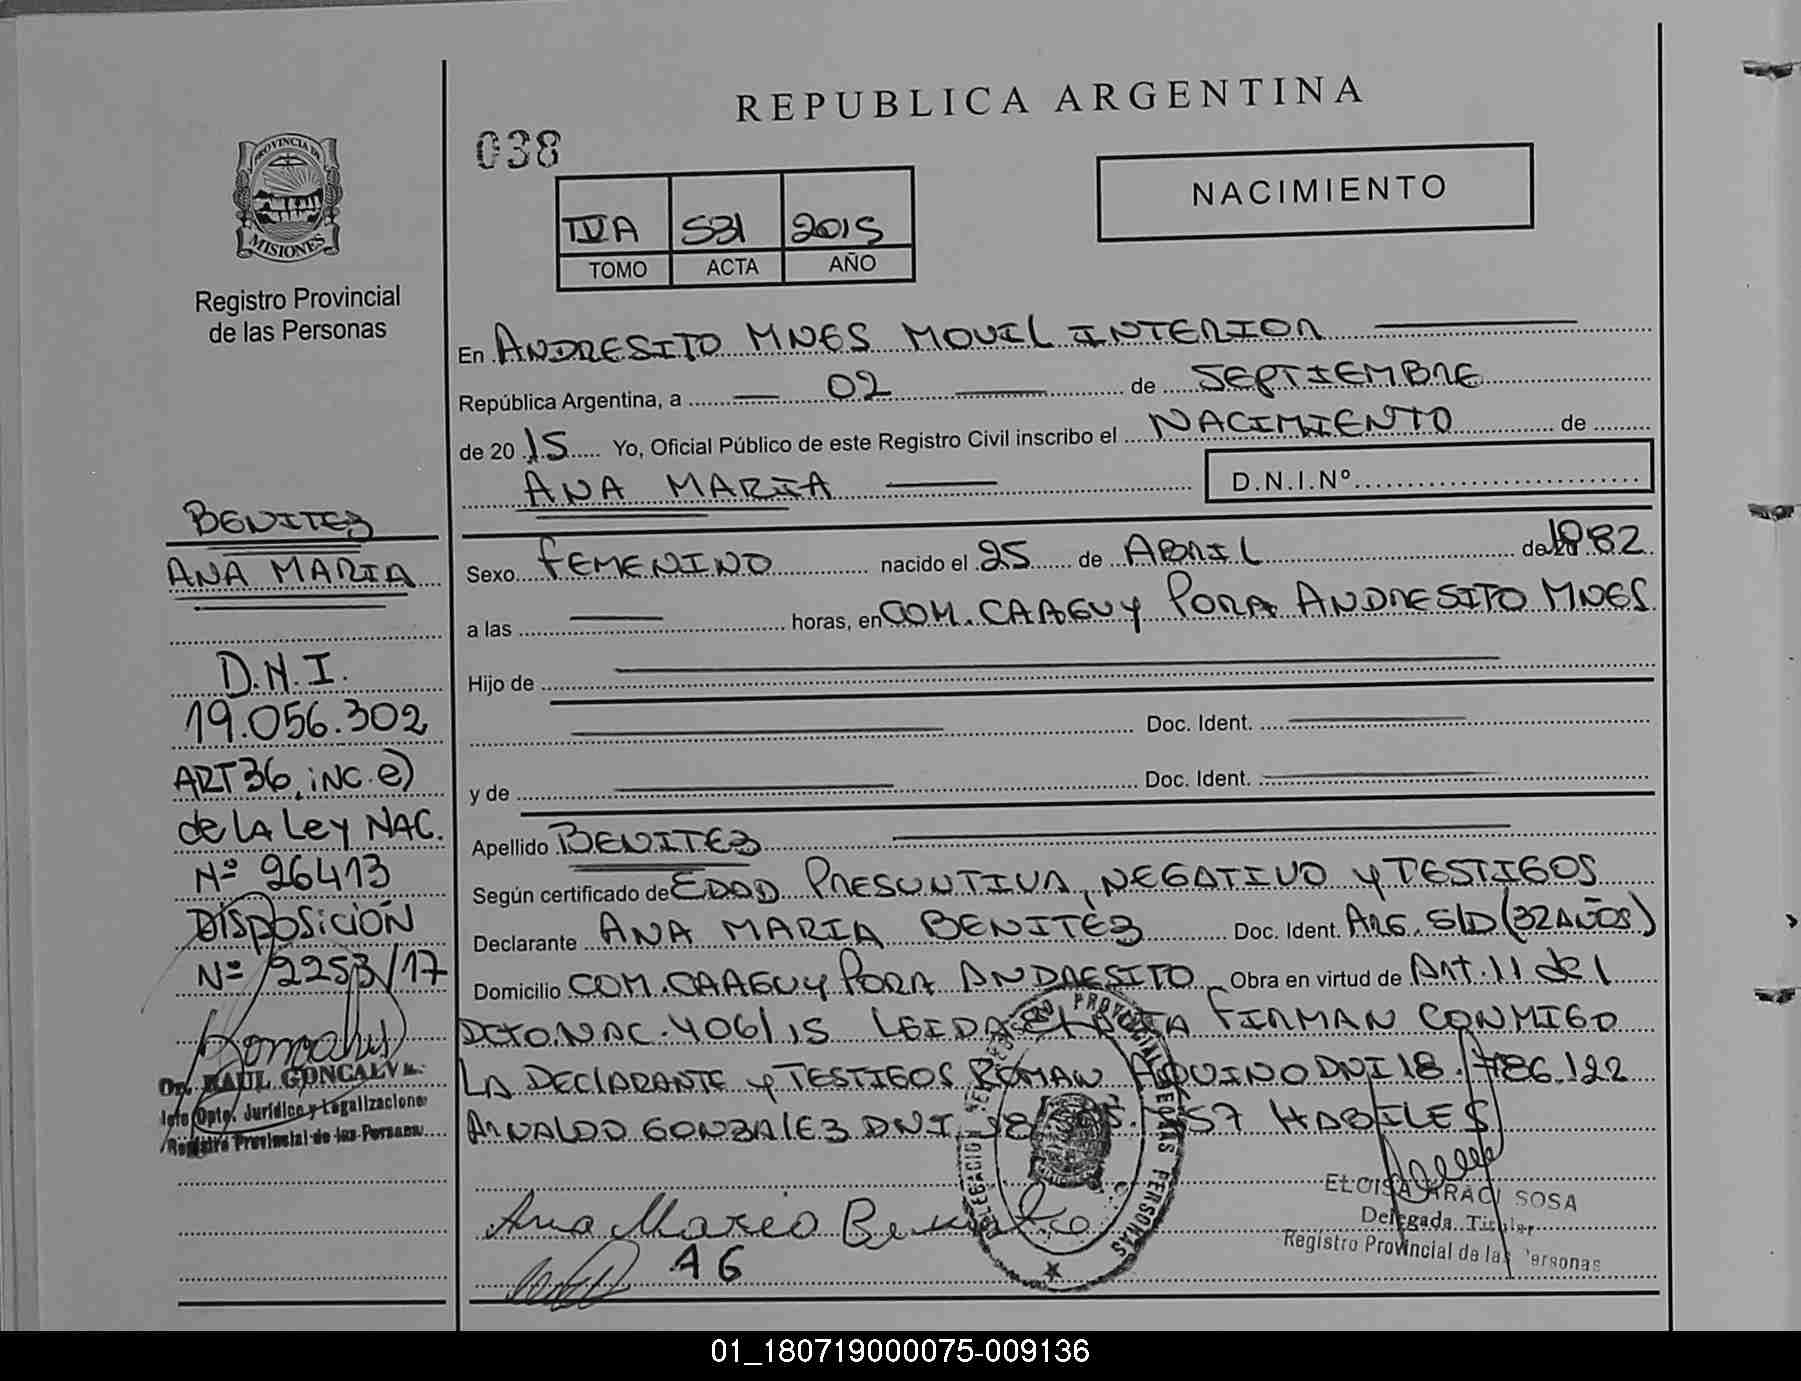 REPUBLICA ARGENTINA
038
NACIMIENTO
PROVINCIA DE
MISIONES
Registro Provincial
de las Personas
IVA 531 2015
TOMO ACTA AÑO
En ANDRESITO MNES MOVIL INTERIOR
República Argentina, a 02 de SEPTIEMBRE
de 2015 Yo, Oficial Público de este Registro Civil inscribo el NACIMIENTO de
ANA MARIA D.N.I.Nº
BENITEZ
ANA MARIA
D.N.I.
19.056.302
ART 36. iNC. e)
de LA Ley NAC.
Nº 26413
DISPOSICIÓN
Nº 2253/17
Dr. RAUL GONCALVES
Jefe Dpto. Jurídico y Legalizaciones
Registro Provincial de las Personas
Sexo FEMENINO nacido el 25 de ABRIL de 1982
a las horas, en COM. CAAGUY PORA ANDRESITO MNES
Hijo de
Doc. Ident.
y de Doc. Ident.
Apellido BENITEZ
Según certificado de EDAD PRESUNTIVA, NEGATIVO y TESTIGOS
Declarante ANA MARIA BENITEZ Doc. Ident. ARG. S/D (32 AÑOS)
Domicilio COM. CAAGUY PORA ANDRESITO Obra en virtud de Art. 11 del
DCTO.NAC. 406/15 LEIDA EL ACTA FIRMAN CONMIGO
LA DECLARANTE y TESTIGOS ROMAN AQUINO DNI 18.786.122
ARNALDO GONZALEZ DNI HABILES
Ana Maria Benitez
AG
ELOISA ARACI SOSA
Delegada Titular
Registro Provincial de las Personas
01_180719000075-009136